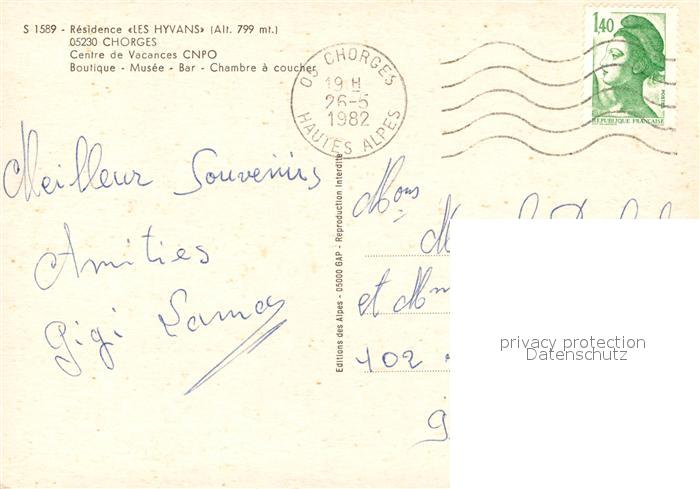 S 1589 - Résidence «LES HYVANS» (Alt. 799 mt.)
05230 CHORGES
Centre de Vacances CNPO
Boutique - Musée - Bar - Chambre à coucher
05 CHORGES
19 H
26-5
1982
HAUTES ALPES
1,40
POSTES
REPUBLIQUE FRANÇAISE
Meilleur Souvenirs
Amities
Gigi
Editions des Alpes - 05000 GAP - Reproduction Interdite
Mons
et
102
privacy protection
Datenschutz